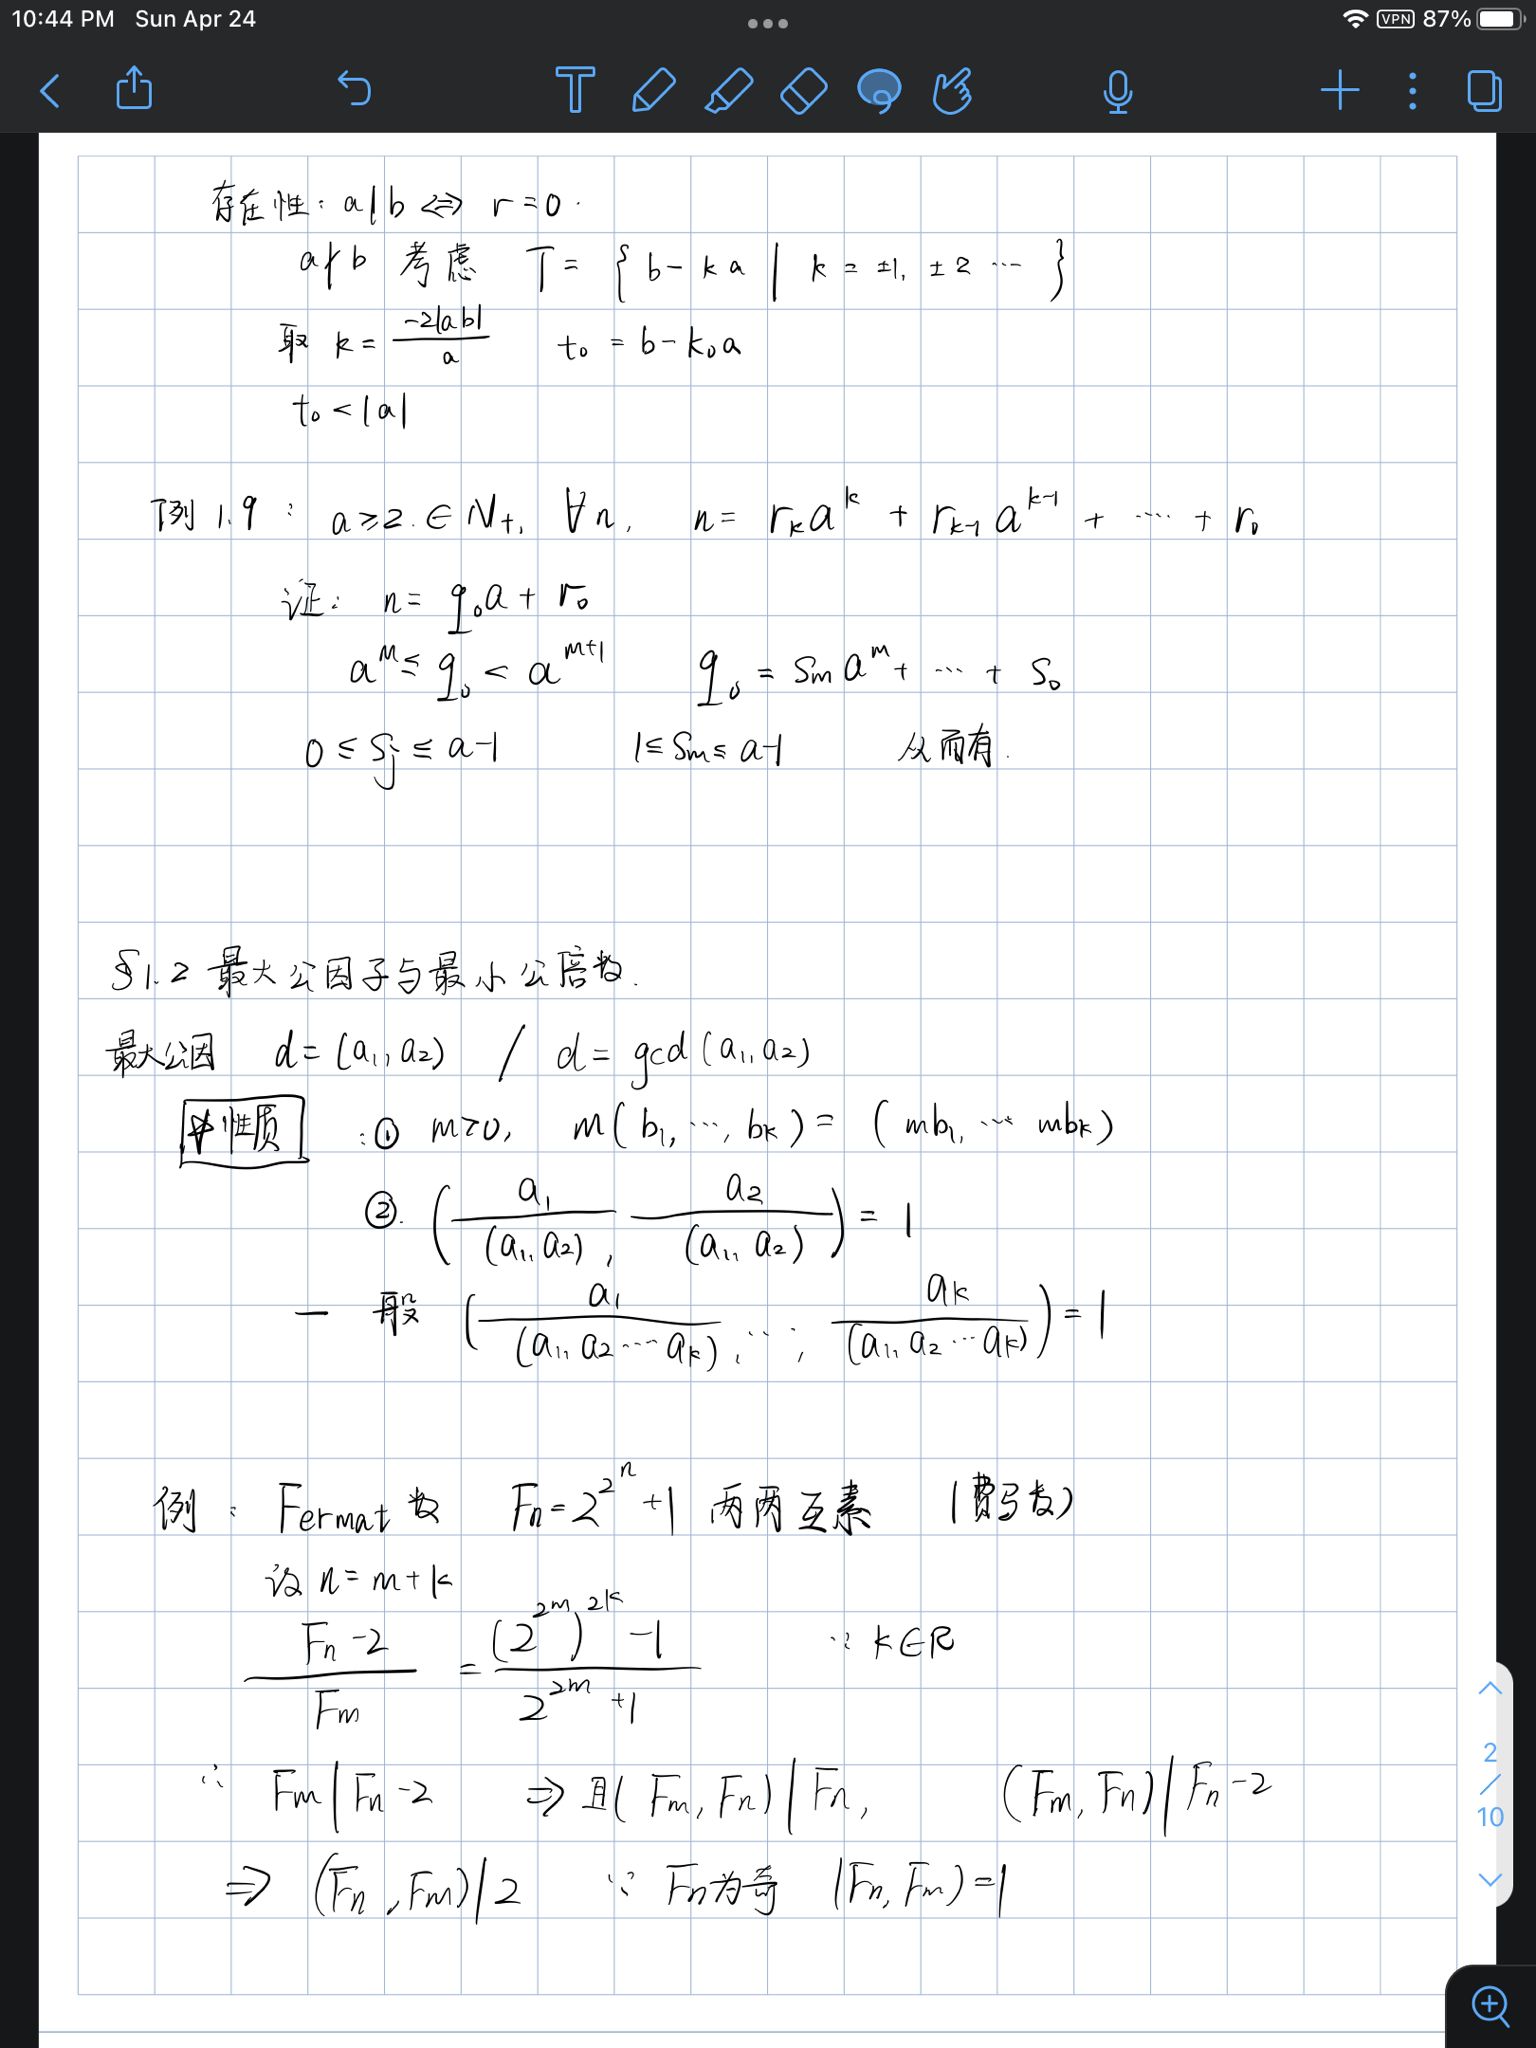 10:44 PM Sun Apr 24
VPN 87%
存在性: a|b ⇔ r=0.
a∤b 考虑 T = { b-ka | k = ±1, ±2 ⋯ }
取 k = -2|ab|/a t₀ = b-k₀a
t₀ < |a|
例 1.9: a≥2. ∈ N₊, ∀n, n = r_k a^k + r_{k-1} a^{k-1} + ⋯ + r₀
证: n = q₀a + r₀
a^m ≤ q₀ < a^{m+1} q₀ = s_m a^m + ⋯ + s₀
0 ≤ s_j ≤ a-1 1 ≤ s_m ≤ a-1 从而有.
§1.2 最大公因子与最小公倍数.
最大公因 d = (a₁, a₂) / d = gcd(a₁, a₂)
性质 : ① m>0, m(b₁, ⋯, b_k) = (mb₁, ⋯ mb_k)
②. (a₁/(a₁, a₂), a₂/(a₁, a₂)) = 1
一般 (a₁/(a₁, a₂ ⋯ a_k), ⋯, a_k/(a₁, a₂ ⋯ a_k)) = 1
例: Fermat数 F_n = 2^{2^n}+1 两两互素 (费马数)
设 n = m+k
(F_n-2)/F_m = ((2^{2m})^{2k}-1)/(2^{2m}+1) ∵ k∈R
∴ F_m | F_n-2 ⇒ 且(F_m, F_n) | F_n, (F_m, F_n) | F_n-2
⇒ (F_n, F_m) | 2 ∵ F_n为奇 (F_n, F_m) = 1
2
/
10